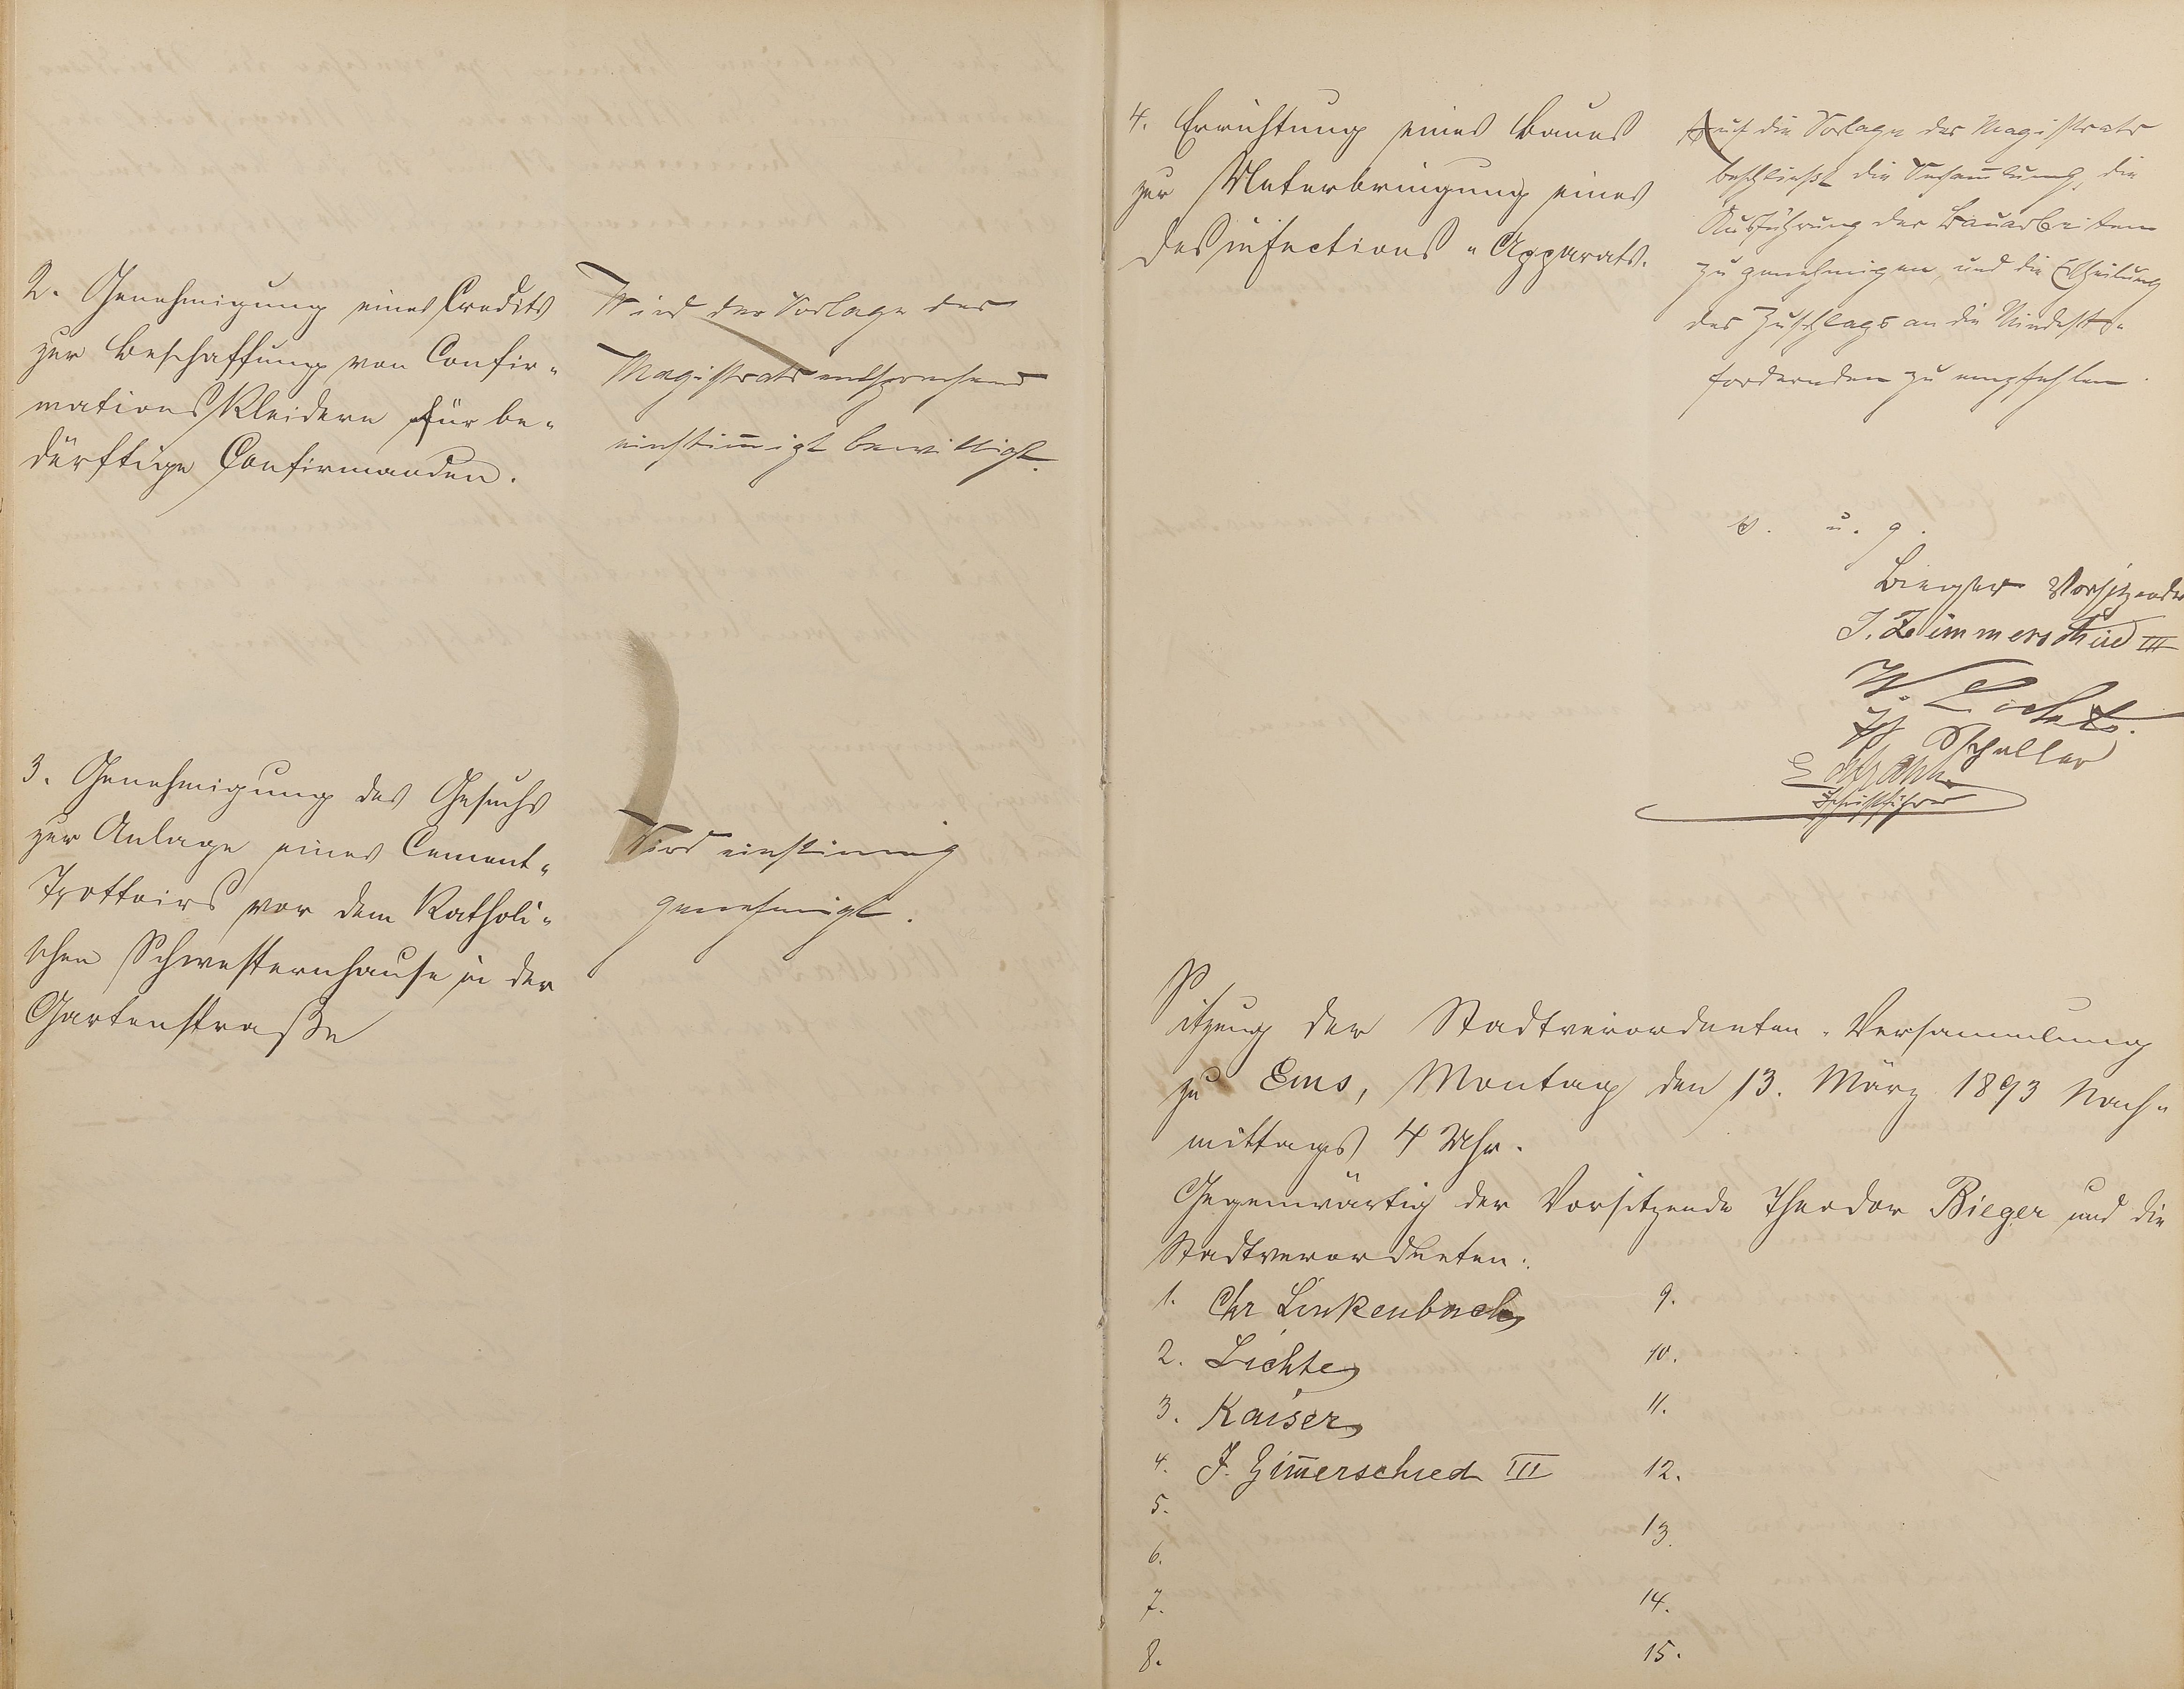 2. Genehmigung eines Credits
zur Beschaffung von Confir-
mationskleidern für be-
dürftige Confirmanden.
Wird der Vorlage des
Magistrats entsprechend
einstim̄igt bewilligt.
3. Genehmigung des Gesuchs
zur Anlage eines Cement-
Trottoirs vor dem Katholi-
schen Schwesternhause in der
Gartenstraße
Wird einstimmig
genehmigt.
4. Errichtung eines Baues
zur Unterbringung eines
Desinfections-Apparats.
Auf die Vorlage des Magistrats
beschließt die Versam̄lung, die
Ausführung der Bauarbeiten
zu genehmigen, und die Ertheilung
des Zuschlags an die Mindest-
fordernden zu empfehlen.
v. u. g.
Bieger Vorsitzender
J. Zimmerschied III
W. Lichte.
Scheller
Schriftführer
Sitzung der Stadtverordneten-Versammlung
zu Ems, Montag den 13. März 1893 Nach-
mittags 4 Uhr.
Gegenwärtig der Vorsitzende Theodor Bieger und die
Stadtverordneten:
1. Chr Linkenbach
2. Lichte
3. Kaiser
4. J. Zim̄erschied III
5.
6.
7.
8.
9.
10.
11.
12.
13.
14.
15.